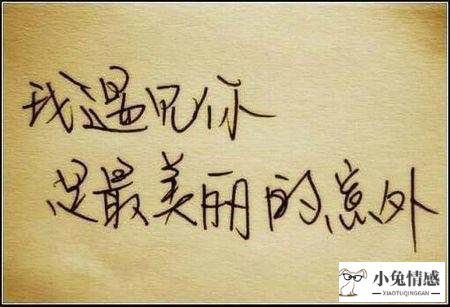 我遇见你
是最美丽的意外
小兔情感
XIAOTUQINGGAN